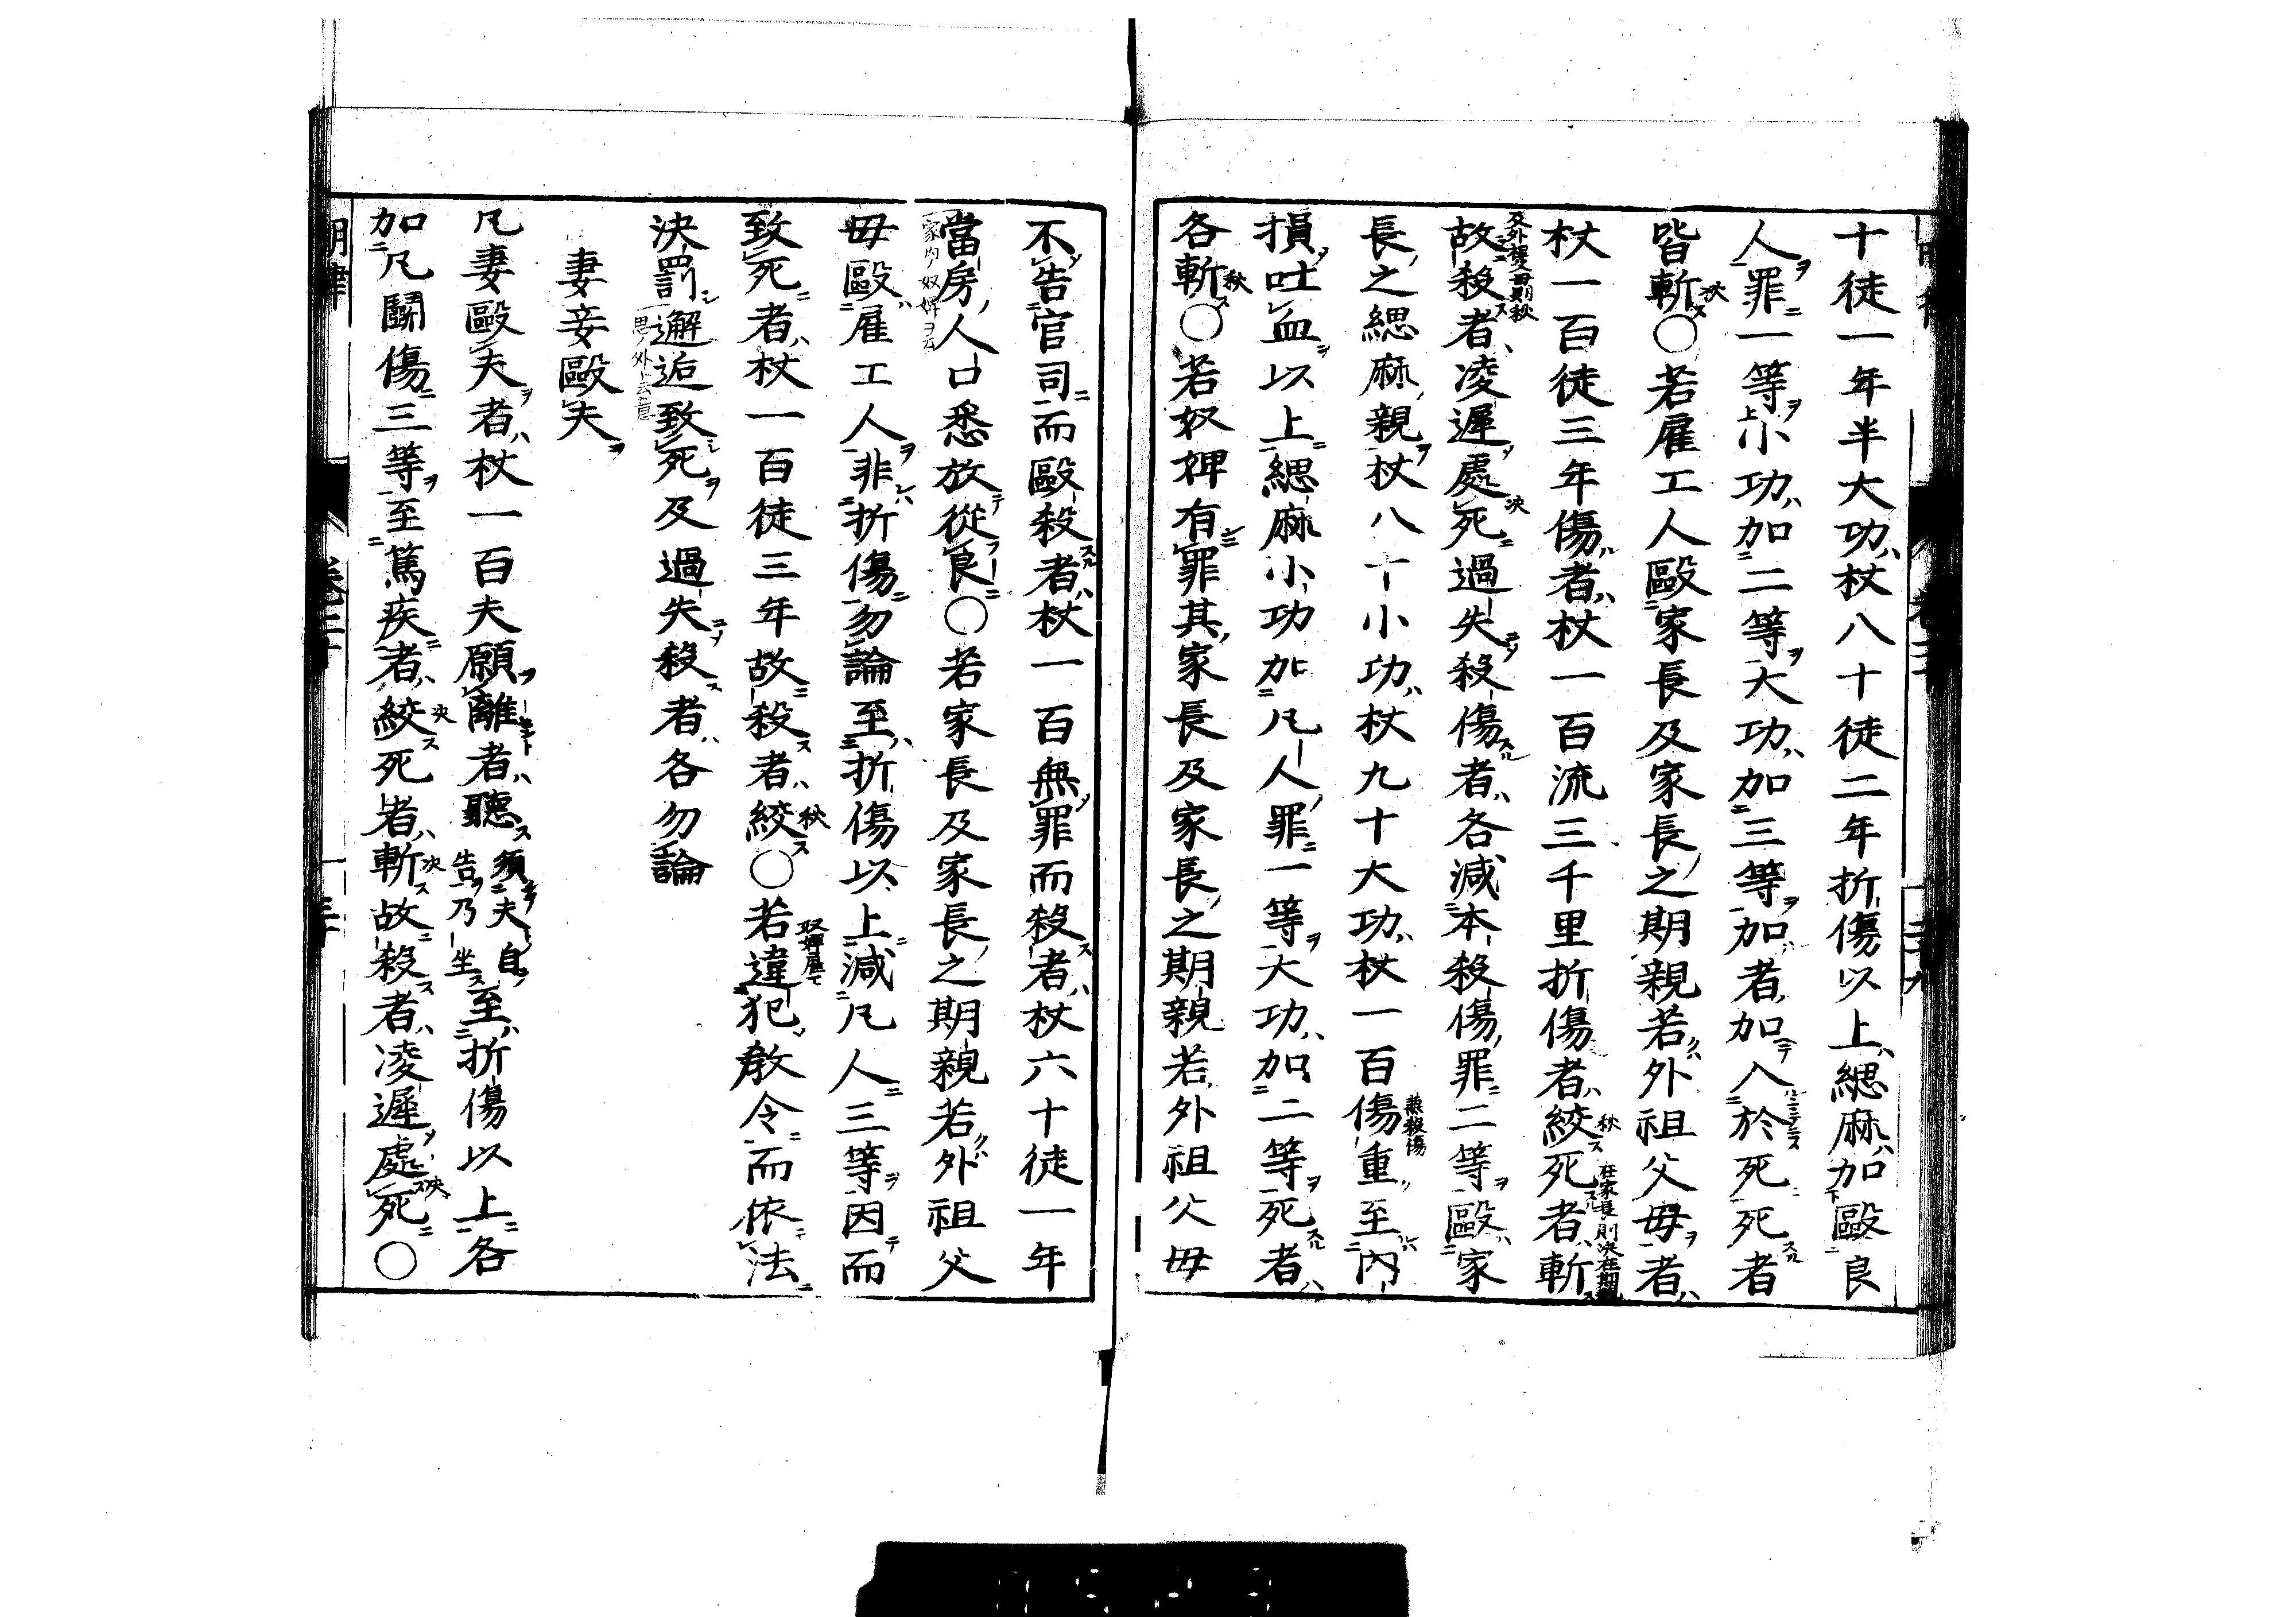 十徒一年半大功杖八十徒二年折傷以上緦麻加毆良
人罪一等小功加二等大功加三等加者加入於死死者
皆斬○若雇工人毆家長及家長之期親若外祖父母者
杖一百徒三年傷者杖一百流三千里折傷者絞死者斬
在家長則决在期親
及外祖父母則秋
故殺者凌遲處死過失殺傷者各減本殺傷罪二等毆家
長之緦麻親杖八十小功杖九十大功杖一百傷重至內
損吐血以上緦麻小功加凡人罪一等大功加二等死者
各斬○若奴婢有罪其家長及家長之期親若外祖父母
不告官司而毆殺者杖一百無罪而殺者杖六十徒一年
當房人口悉放從良○若家長及家長之期親若外祖父
母毆雇工人非折傷勿論至折傷以上減凡人三等因而
致死者杖一百徒三年故殺者絞○若違犯教令而依法
決罰邂逅致死及過失殺者各勿論
妻妾毆夫
凡妻毆夫者杖一百夫願離者聽須夫自告乃坐至折傷以上各
加凡鬪傷三等至篤疾者絞死者斬故殺者凌遲處死○